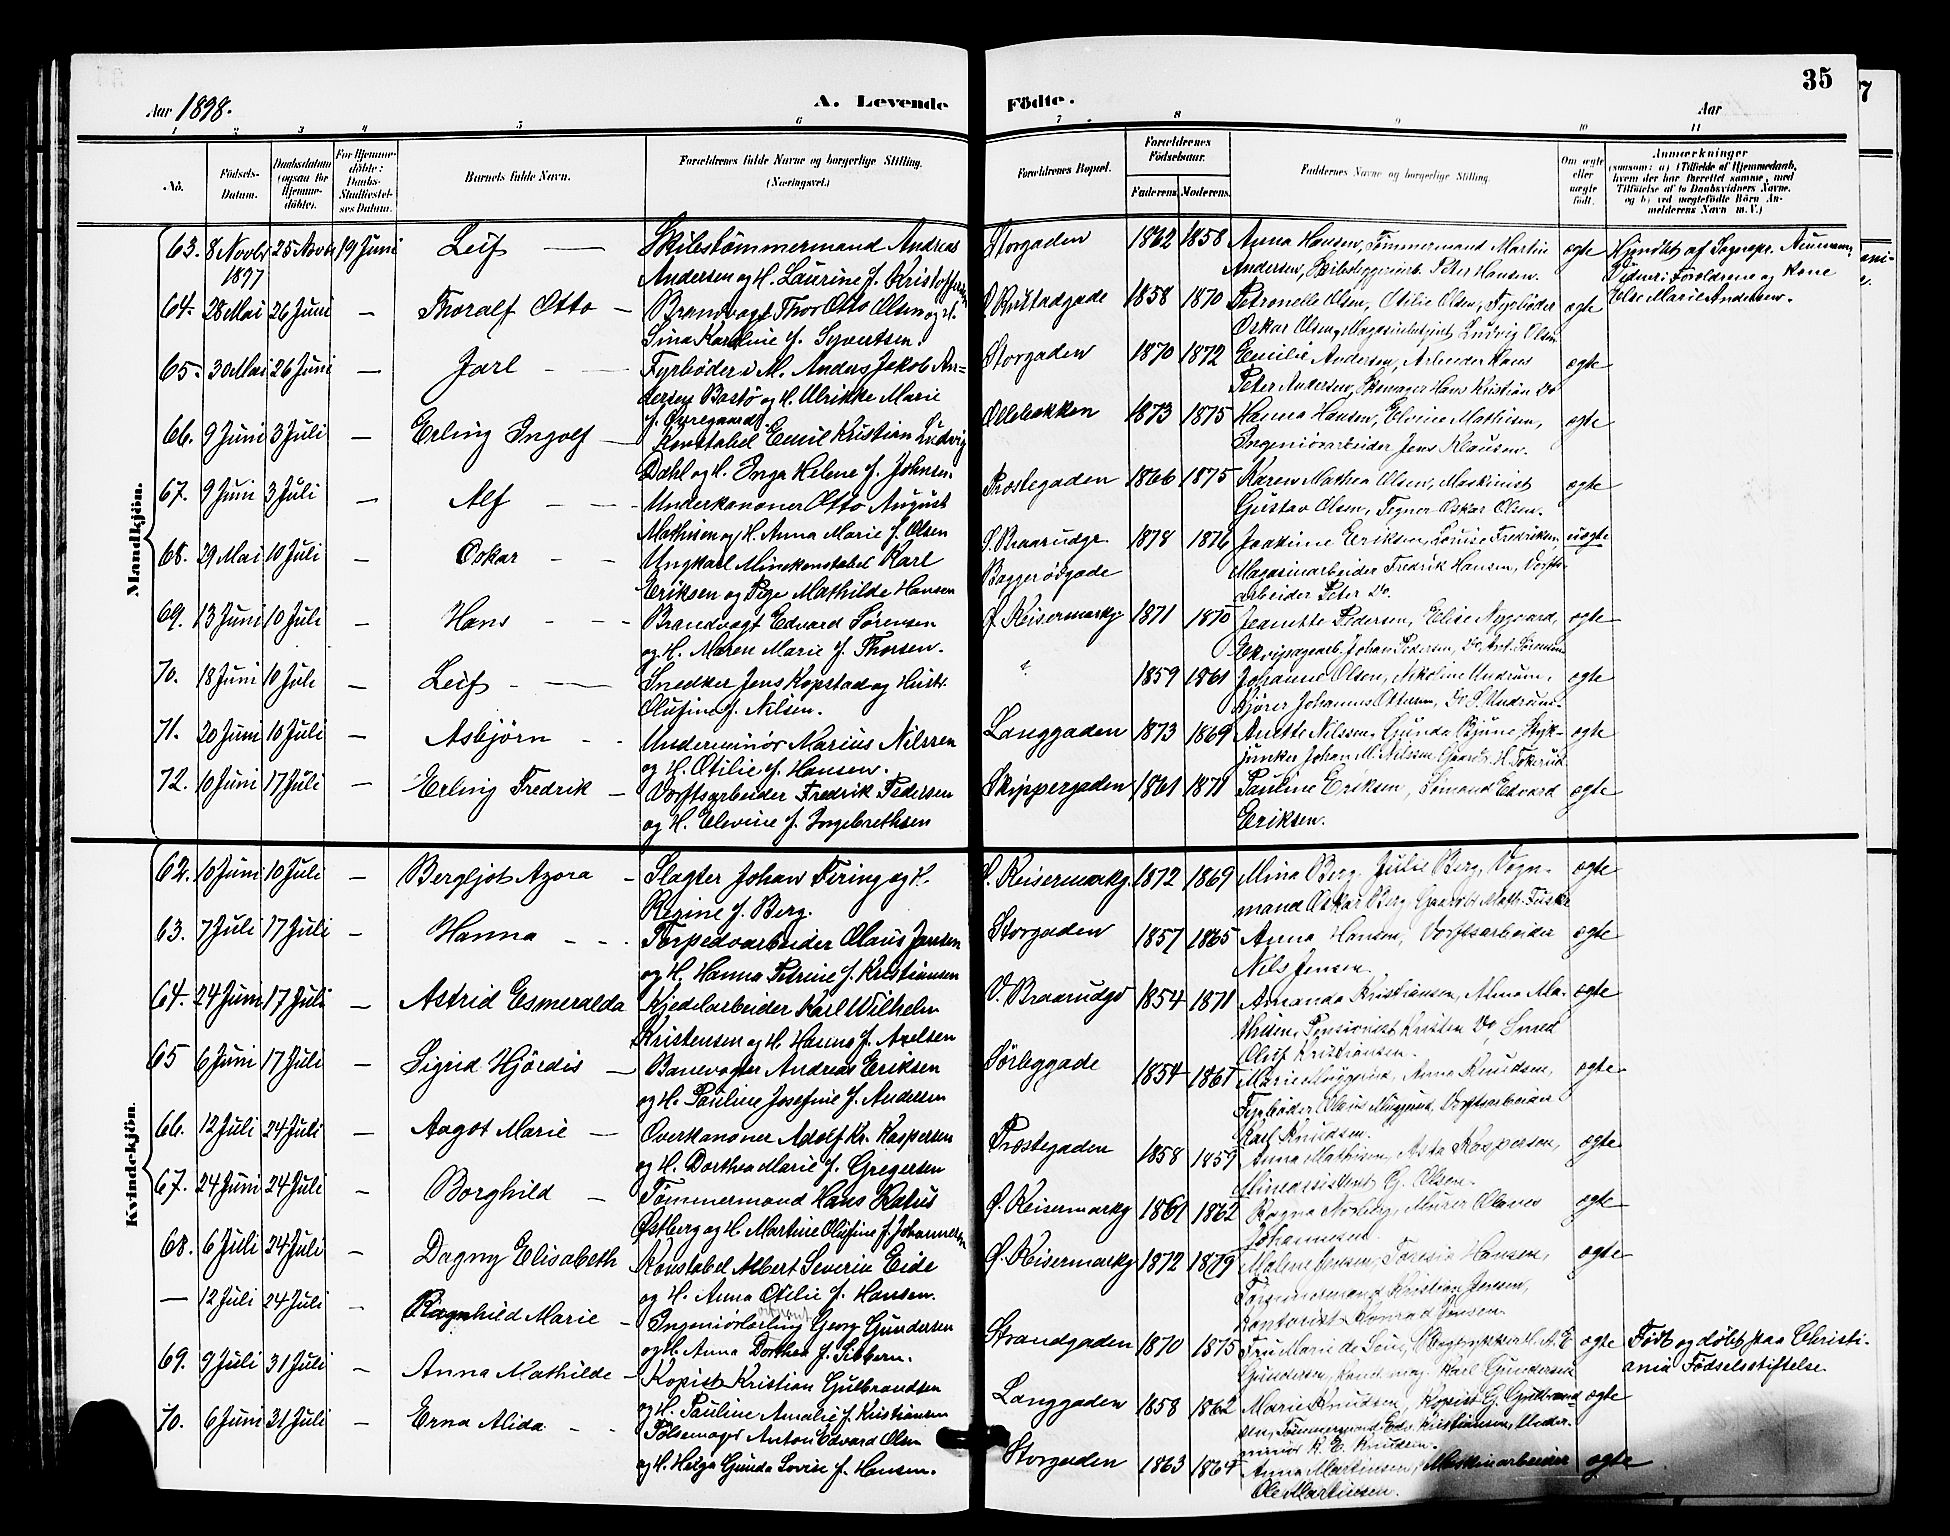 35
Aar 1898.
A. Levende Födte.
Aar
1 2 3 4 5 6 7 8 9 10 11
No.
Födsels-Datum.
Daabsdatum (ogsaa for Hjemme-döbte).
For Hjemme-döbte: Daabs-Stadfæstel-ses Datum.
Barnets fulde Navn.
Forældrenes fulde Navne og borgerlige Stilling. (Næringsvei.)
Forældrenes Bopæl.
Forældrenes Födselsaar.
Faderens. Moderens.
Faddernes Navne og borgerlige Stilling.
Om ægte eller uægte födt.
Anmærkninger
(saasom: a) i Tilfælde af Hjemmedaab, hvem der har forrettet samme, med Tilföielse af to Daabsvidners Navne, og b) ved uægtefödte Börn An-melderens Navn m. V.)
Mandkjön.
63. 8 Novbr 1897 25 Novbr 19 Juni Leif Skibstømmermand Andreas Andersen og H. Laurine f. Kristoffersen Storgaden 1862 1858 Anna Hansen, Tømmermand Martin Andersen, Skibsbyggerarb. Peter Hansen. ægte Hjmdbt af Sognepr. Neumann, Vidner: Foreldrene og Kone Else Marie Andersen.
64. 28 Mai 26 Juni – Thoralf Otto Brandvagt Thor Otto Olsen og H. Sina Karoline f. Syvertsen. 1858 1870 Petronelle Olsen, Otilie Olsen, Fyrbøder Oskar Olsen, Ludvig Olsen ægte
65. 30 Mai 26 Juni – Jarl Fyrbøder i M. Anders Jakob Andersen Bastø og H. Ulrikke Marie f. Storgaden 1870 1872 Emilie Andersen, Arbeider Hans Peter Andersen, Skomager Hans Kristian Do ægte
66. 9 Juni 3 Juli – Erling Ingolf Konstabel Emil Kristian Ludvig Dahl og H. Inga Helene f. Johnsen. 1873 1875 Hanna Hansen, Mathisen, Jens Klausen. ægte
67. 9 Juni 3 Juli – Alf Underkanoner Otto August Mathisen og H. Anna Marie f. Olsen Præstegaden 1866 1875 Karen Mathea Olsen, Maskinist Gustav Olsen, Tegner Oskar Olsen. ægte
68. 29 Mai 10 Juli – Oskar Ungkarl Minekonstabel Karl Eriksen og Pige Mathilde Hansen Ø. Braarudgr. Baggerødgade 1878 1876 Joakime Eriksen, Lovise Fredriksen, Magasinarbeider Fredrik Hansen, Værftsarbeider Peter Do. uægte
69. 13 Juni 10 Juli – Hans Brandvagt Edvard Sørensen og H. Maren Marie f. Thorsen. Ø. Keisermarkg 1871 1870 Jeanette Pedersen, Elise Nygaard, Ekvipagearb. Johan Pedersen, Do. Ant. Sørensen ægte
70. 18 Juni 10 Juli – Leif Snedker Jens Kopstad og Hustr. Olufine f. Nilsen. " 1859 1861 Johanne Olsen, Nikoline Undrum, Kjører Johannes Ottersen, Do S. Undrum. ægte
71. 20 Juni 10 Juli – Asbjørn Underminør Marius Nilssen og H. Otilie f. Hansen. Langgaden 1873 1869 Anette Nilssen, Gunda Bjune, Stykjunker Johan M. Nilssen, Gaardbr. H. ægte
72. 10 Juni 17 Juli – Erling Fredrik Værftsarbeider Fredrik Pedersen og H. Elevine f. Ingebrethsen Skippergaden 1861 1871 Pauline Eriksen, Sømand Edvard Eriksen. ægte
Kvindekjön.
62. 10 Juni 10 Juli – Bergljot Azora Slagter Johan Firing og H. Regine f. Berg. Ø. Keisermarkg. 1872 1869 Mina Berg, Julie Berg, Vognmand Oskar Berg, Gaardbr. Math. ægte
63. 7 Juli 17 Juli – Hanna Torpedoarbeider Olaus Jansen og H. Hanna Petrine f. Kristiansen Storgaden 1857 1865 Anna Hansen, Værftsarbeider Nils Jensen. ægte
64. 24 Juni 17 Juli – Astrid Esmeralda Kjedelarbeider Karl Wilhelm Kristensen og H. Hanna f. Axelsen V. Braarudgd 1854 1871 Amanda Kristiansen, Alma Mathisen, Pensionist Kristen Do, Smed Oluf Kristiansen. ægte
65 6 Juni 17 Juli – Sigrid Hjördis Banevogter Andreas Eriksen og H. Pauline Josefine f. Andersen Sørbyggade 1854 1861 Marie Muggerud, Anna Knudsen, Fyrbøder Olaus Muggerud, Værftsarbeider Karl Knudsen. ægte
66. 12 Juli 24 Juli – Aagot Marie Overkanoner Adolf Kr. Kaspersen og H. Dorthea Marie f. Gregersen Præstegaden 1858 1859 Anna Mathisen, Asta Kaspersen, Mineassistent G. Olsen. ægte
67. 24 Juni 24 Juli – Borghild Tømmermand Hans Østberg og H. Martine Olufine f. Johannesen Ø. Keisermarkg 1861 1862 Ragna Murer Olaves Johannesen. ægte
68. 6 Juli 24 Juli – Dagny Elisabeth Konstabel Albert Severin Eide og H. Anna Otilie f. Hansen. Ø. Keisermarkg 1872 1879 Malene Jensen, Teresia Hansen, Tømmermand Kristian Jensen, Kontorist Konrad Jensen. ægte
— 12 Juli 24 Juli – Ragnhild Marie Ingeniørlærling Georg Gundersen og H. Anna Dorthea f. Sibbern. Strandgaden 1870 1875 Fru Marie de Seue, Bogtrykker H. A. E Gundersen, Kand. mag. Karl Gundersen ægte Født og døbt paa Christiania Fødselsstiftelse
69. 9 Juli 31 Juli – Anna Mathilde Kopist Kristian Gulbrandsen og H. Pauline Amalie f. Kristiansen Langgaden 1858 1862 Marie Knudsen, Kopist G. Gulbrandsen, Tømmermand Edv. Kristiansen, Underminør K. E. Knudsen. ægte
70. 6 Juni 31 Juli – Erna Alida Pølsemager Anton Edvard Olsen og H. Helga Gunda Lovise f. Hansen. Storgaden 1863 1864 Anna Martinsen, Maskinarbeider Ole Martinsen. ægte